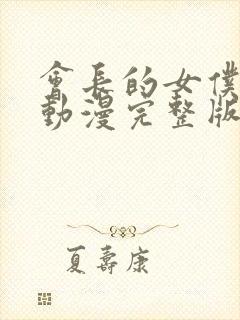 會長的女僕
動漫完整版
夏壽康